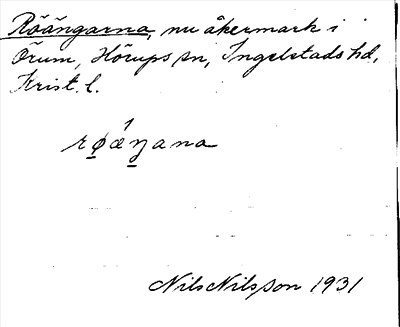 Röängarna, nu åkermark i
Örum, Hörups sn, Ingelstads hd,
Krist. l.
rø̱ǽŋ̱ana
Nils Nilsson 1931